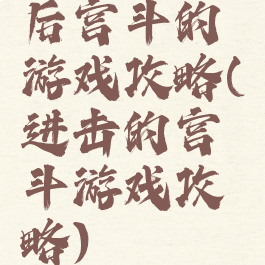 后宫斗的
游戏攻略(
进击的宫
斗游戏攻
略)